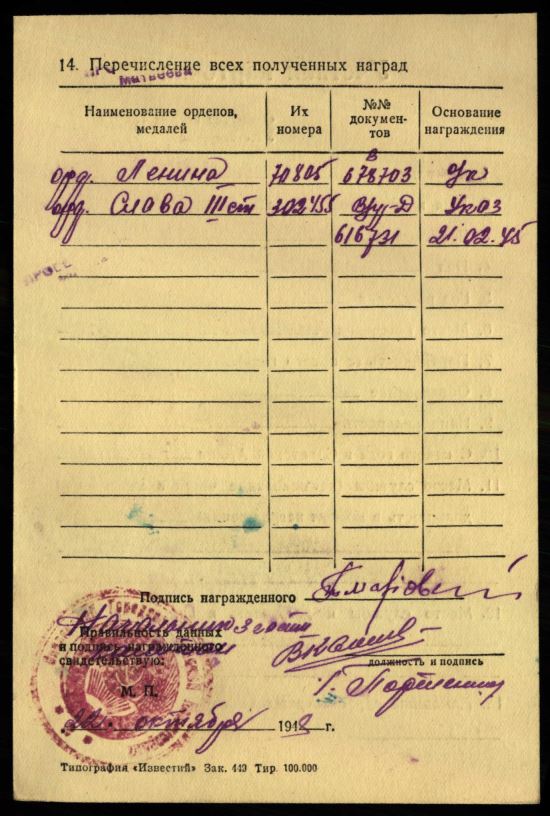 14. Перечисление всех полученных наград
Матвеева
Наименование орденов, медалей
Их номера
№№ документов
Основание награждения
орд. Ленина 70805 В 678703 Ук
орд. Слава III ст 302455 Указ
616731 21.02.45
Подпись награжденного
Начальник
Правильность данных
и подпись награжденного
свидетельствую:
должность и подпись
М. П.
октября 194 г.
Типография «Известий» Зак. 449 Тир. 100.000